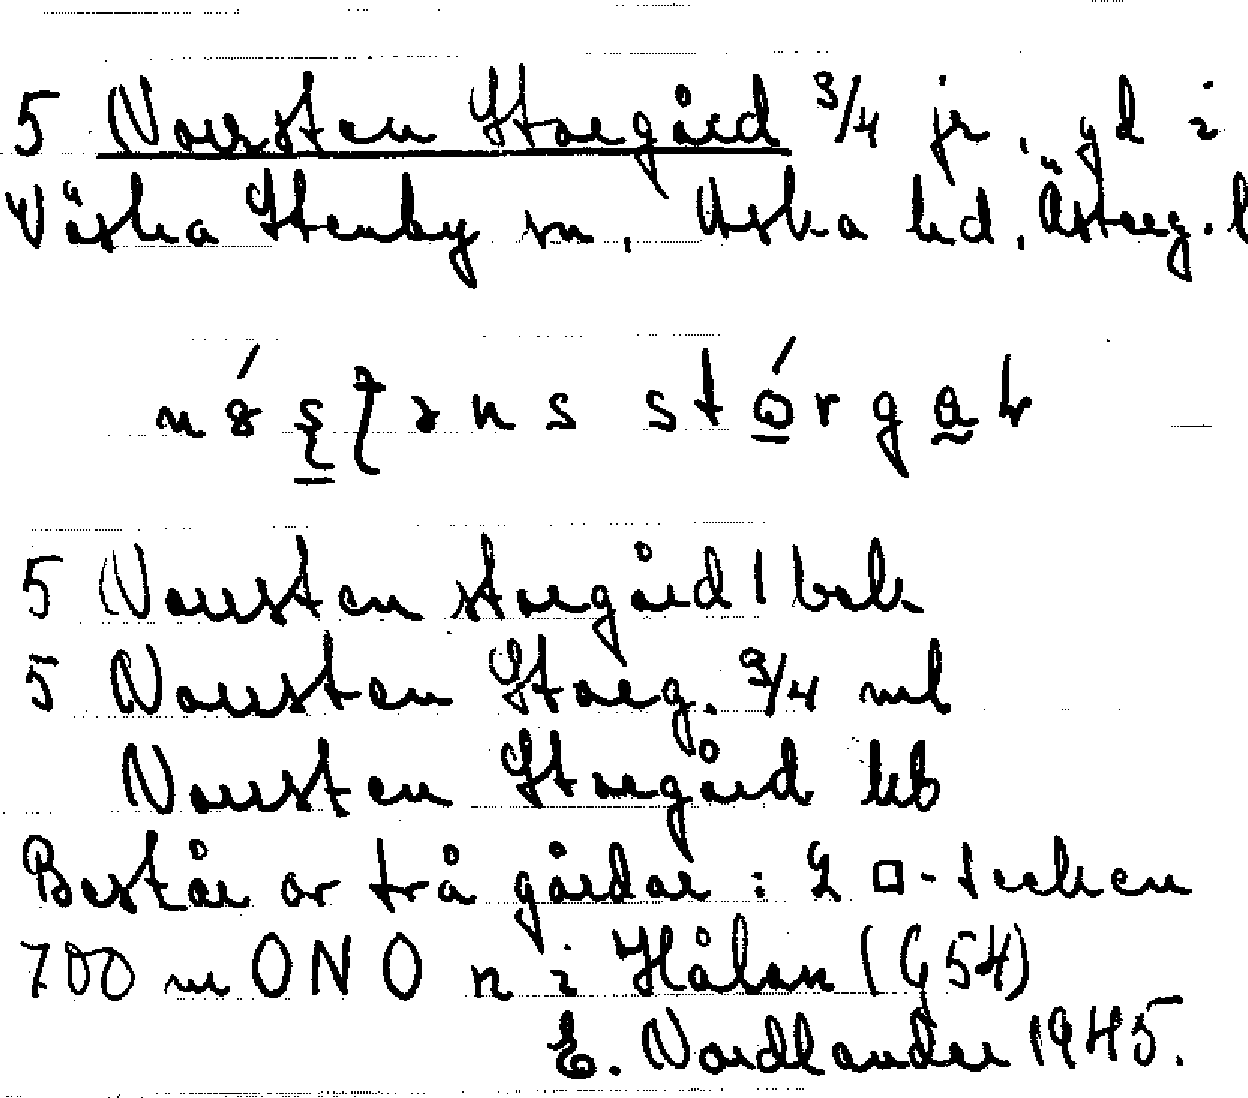 5 Norrsten Storgård 3/4 jr, gd i
Västra Stenby sn, Aska hd, Österg. l
5 Norrsten storgård | bek
5 Norrsten Storg. 3/4 ml
Norrsten Storgård kb
Består av två gårdar : 2 □-tecken
700 m ONO n i Hålan (G54)
E. Nordlander 1945.